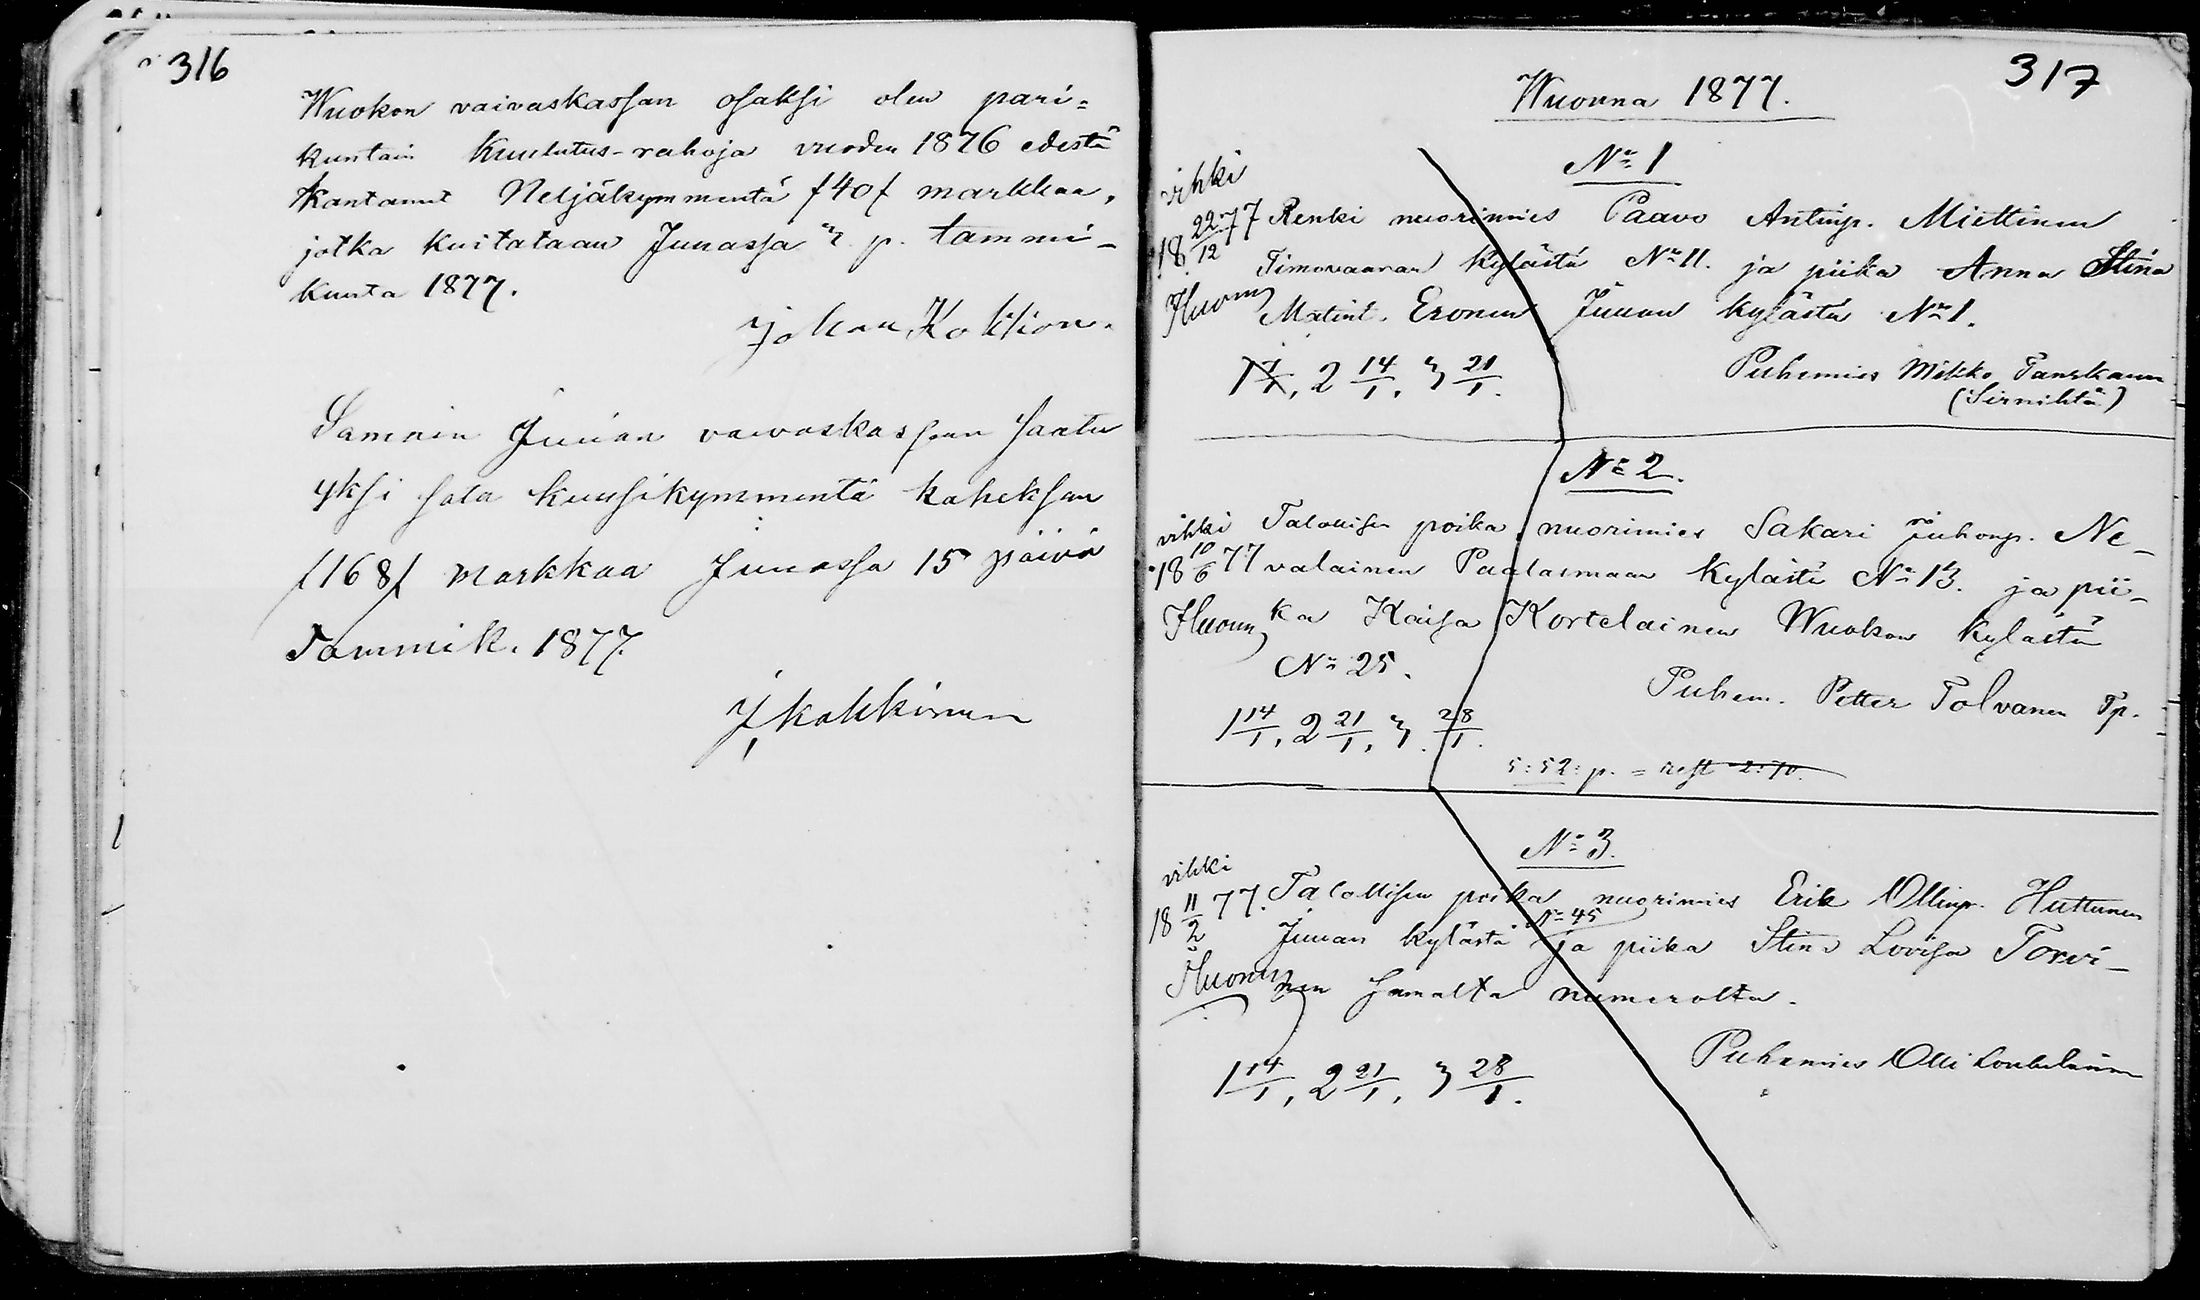 316
Wuokon vaivaskassan osaksi olen pari=
kuntain Kuulutus-rahoja vuoden 1876 edestä
kantanut Neljäkymmentä /40/ markkaa,
jotka kuitataan Juuassa 3 p. tammi-
kuuta 1877.
Johan
Samoin Juuan vaivaskassaan saatu
yksi sata kuusikymmentä kaheksan
/168/ markkaa Juuassa 15 päivä
Tammik. 1877.
J. Kokkinen
317
Wuonna 1877.
No 1
vihki
18 22/12 77 Renki nuorimies Paavo Antinp. Miettinen
Timovaaran kylästä No 11. ja piika Anna Stina
Matint. Eronen Juuan kylästä No 1.
1 7/1, 2 14/1, 3 21/1.
Puhemies Mikko Tanskanen
No 2.
vihki Talollisen poika, nuorimies Sakari Juhonp. Ne-
18 10/6 77 valainen Paalasmaan kylästä No 13. ja pii-
ka Kaisa Kortelainen Wuokon kylästä
No 25.
Puhem. Petter Tolvanen Tp.
1 14/1, 2 21/1, 3 28/1.
5:52: p. = rest 2:70.
No 3.
vihki
18 11/2 77. Talollisen poika nuorimies Erik Ollinp. Huttunen
Juuan kylästä No 45 ja piika Stina Lovisa Torvi-
nen samalta numerolta.
1 14/1, 2 21/1, 3 28/1.
Puhemies Olli